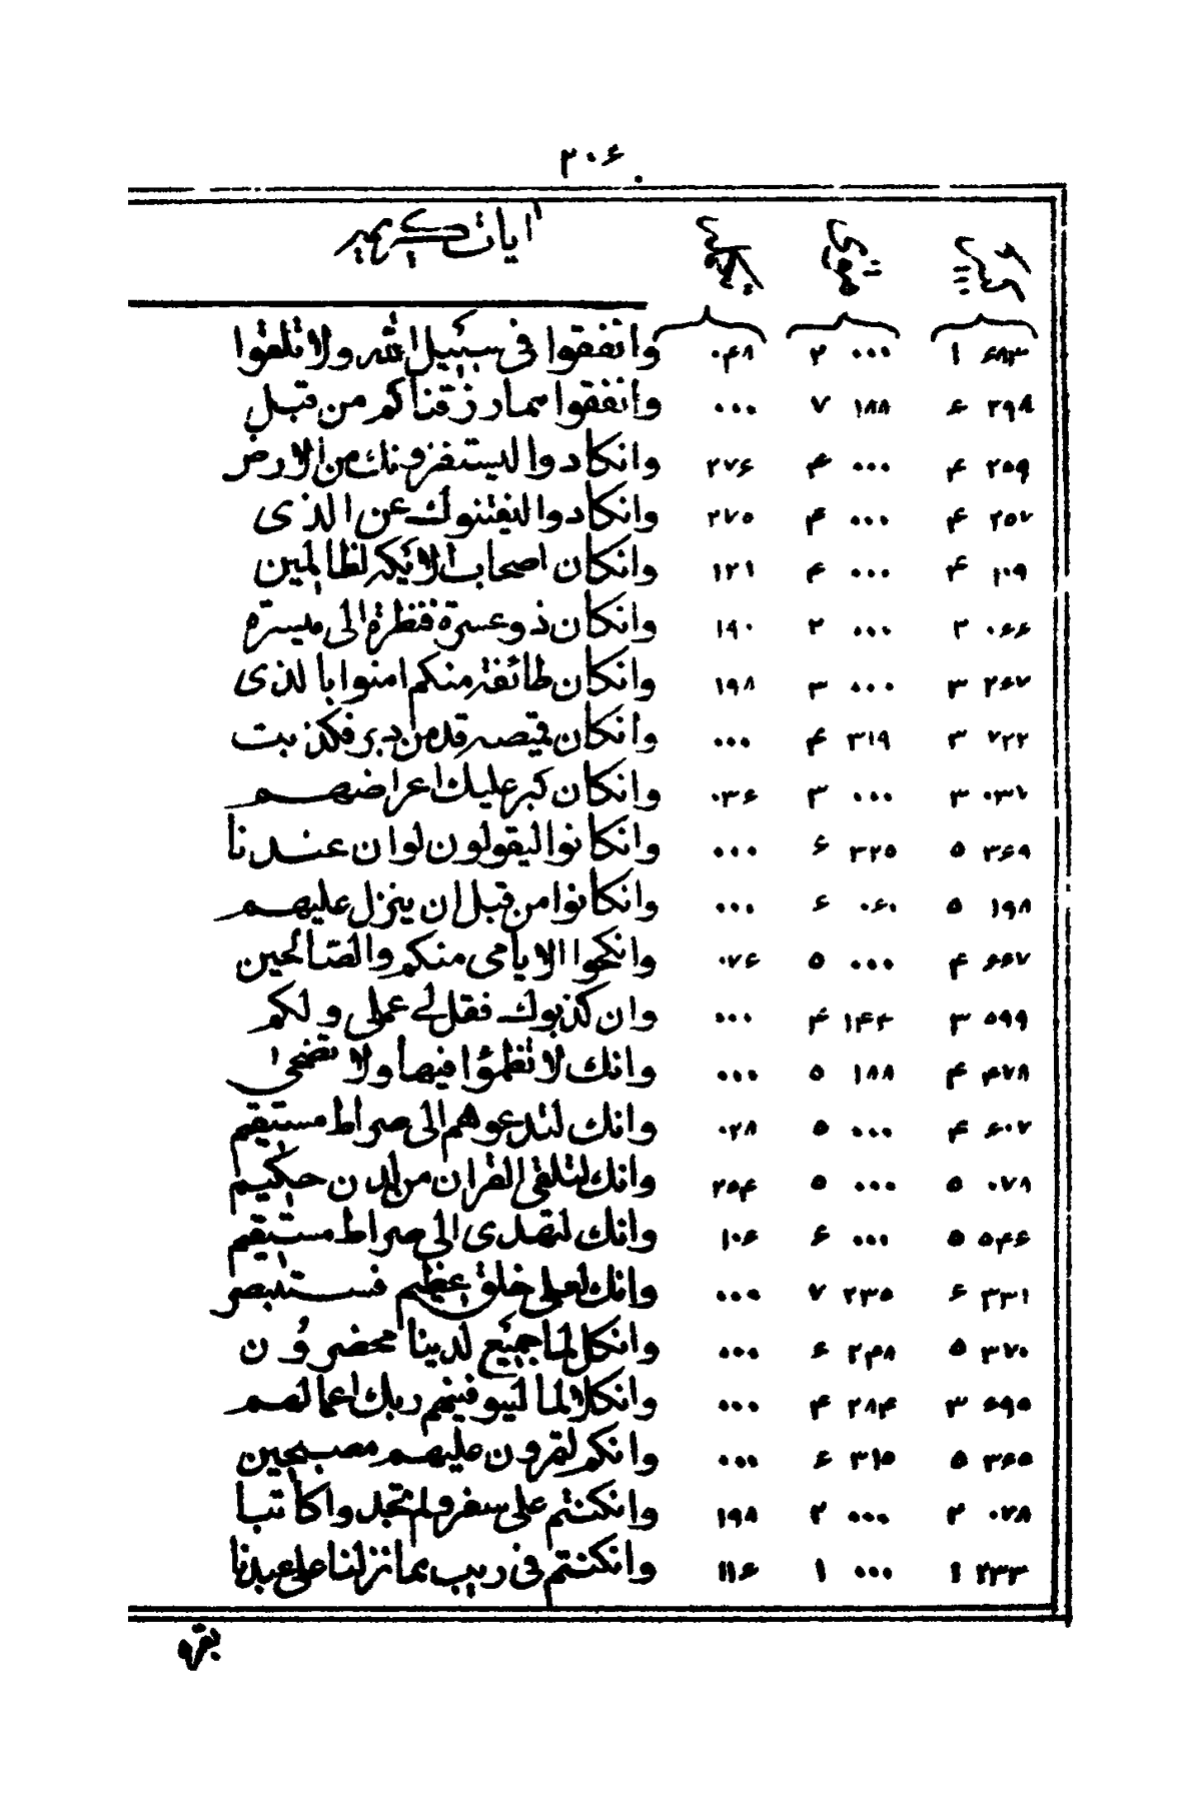 ۲۰۶
آیات کریمه
۶۸۳ ۱ ۰۰۰ ۲ ۰۴۸ وانفقوا فی سبیل الله ولا تلقوا
۲۹۸ ۶ ۱۸۸ ۷ ۰۰۰ وانفقوا مما رزقناکم من قبل
۲۵۹ ۴ ۰۰۰ ۴ ۲۷۶ وانکادوا لیستفزونك من الارض
۲۵۷ ۴ ۰۰۰ ۴ ۲۷۵ وانکادوا لیفتنوك عن الذی
۱۰۹ ۴ ۰۰۰ ۴ ۱۲۱ وانکان اصحاب الایکه لظالمین
۰۶۶ ۲ ۰۰۰ ۲ ۱۹۰ وانکان ذوعسرة فنظرة الی میسره
۲۶۷ ۳ ۰۰۰ ۳ ۱۹۸ وانکان طائفة منکم امنوا بالذی
۷۲۲ ۳ ۳۱۹ ۴ ۰۰۰ وانکان قمیصه قد من دبر فکذبت
۰۳۱ ۳ ۰۰۰ ۳ ۰۳۶ وانکان کبر علیك اعراضهم
۳۶۹ ۵ ۳۲۵ ۶ ۰۰۰ وانکانوا لیقولون لوان عندنا
۱۹۸ ۵ ۰۶۰ ۶ ۰۰۰ وانکانوا من قبل ان ینزل علیهم
۶۶۷ ۴ ۰۰۰ ۵ ۰۷۶ وانکحوا الایامی منکم والصالحین
۵۹۹ ۳ ۱۴۴ ۴ ۰۰۰ وان کذبوك فقل لی عملی ولکم
۴۷۸ ۴ ۱۸۸ ۵ ۰۰۰ وانك لا تظمؤا فیها ولا تضحی
۶۰۷ ۴ ۰۰۰ ۵ ۰۲۸ وانك لتدعوهم الی صراط مستقیم
۰۷۸ ۵ ۰۰۰ ۵ ۲۵۴ وانك لتلقی القران من لدن حکیم
۵۴۶ ۵ ۰۰۰ ۶ ۱۰۶ وانك لتهدی الی صراط مستقیم
۳۳۱ ۶ ۲۳۵ ۷ ۰۰۰ وانك لعلی خلق عظیم فستبصر
۳۷۰ ۵ ۲۴۸ ۶ ۰۰۰ وانکل لما جمیع لدینا محضرون
۶۹۵ ۳ ۲۸۴ ۴ ۰۰۰ وانکلا لما لیوفینهم ربك اعمالهم
۳۶۵ ۵ ۳۱۵ ۶ ۰۰۰ وانکم لتمرون علیهم مصبحین
۰۲۸ ۲ ۰۰۰ ۲ ۱۹۸ وانکنتم علی سفر ولم تجدوا کاتبا
۲۳۳ ۱ ۰۰۰ ۱ ۱۱۶ وانکنتم فی ریب مما نزلنا علی عبدنا
بقره